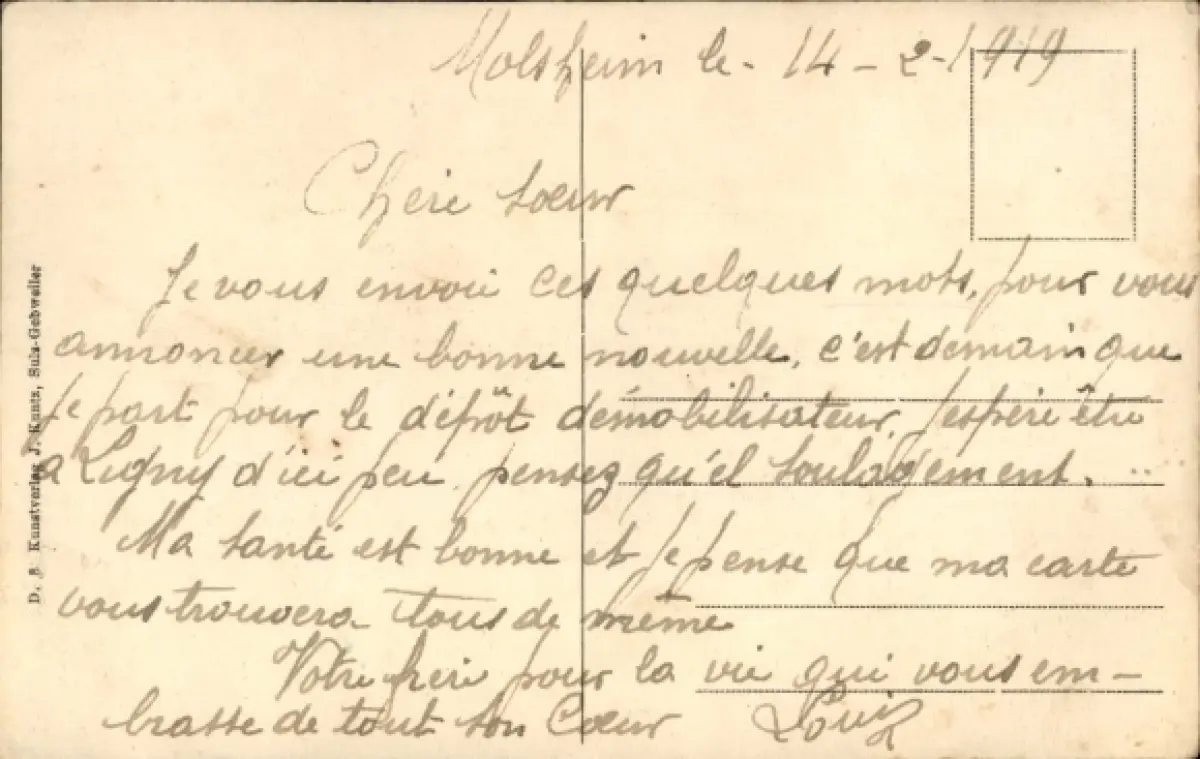 Molsheim le - 14 - 2 - 1919
Chère sœur
Je vous envoie ces quelques mots, pour vous
annoncer une bonne nouvelle, c'est demain que
je part pour le dépôt démobilisateur, j'espère être
a Ligny d'ici peu, pensez qu'el soulagement.
Ma santé est bonne et je pense que ma carte
vous trouvera tous de même
Votre frère pour la vie qui vous em-
brasse de tout son Cœur
D. & Kunstverlag J. Kuntz, Sulz-Gebweiler